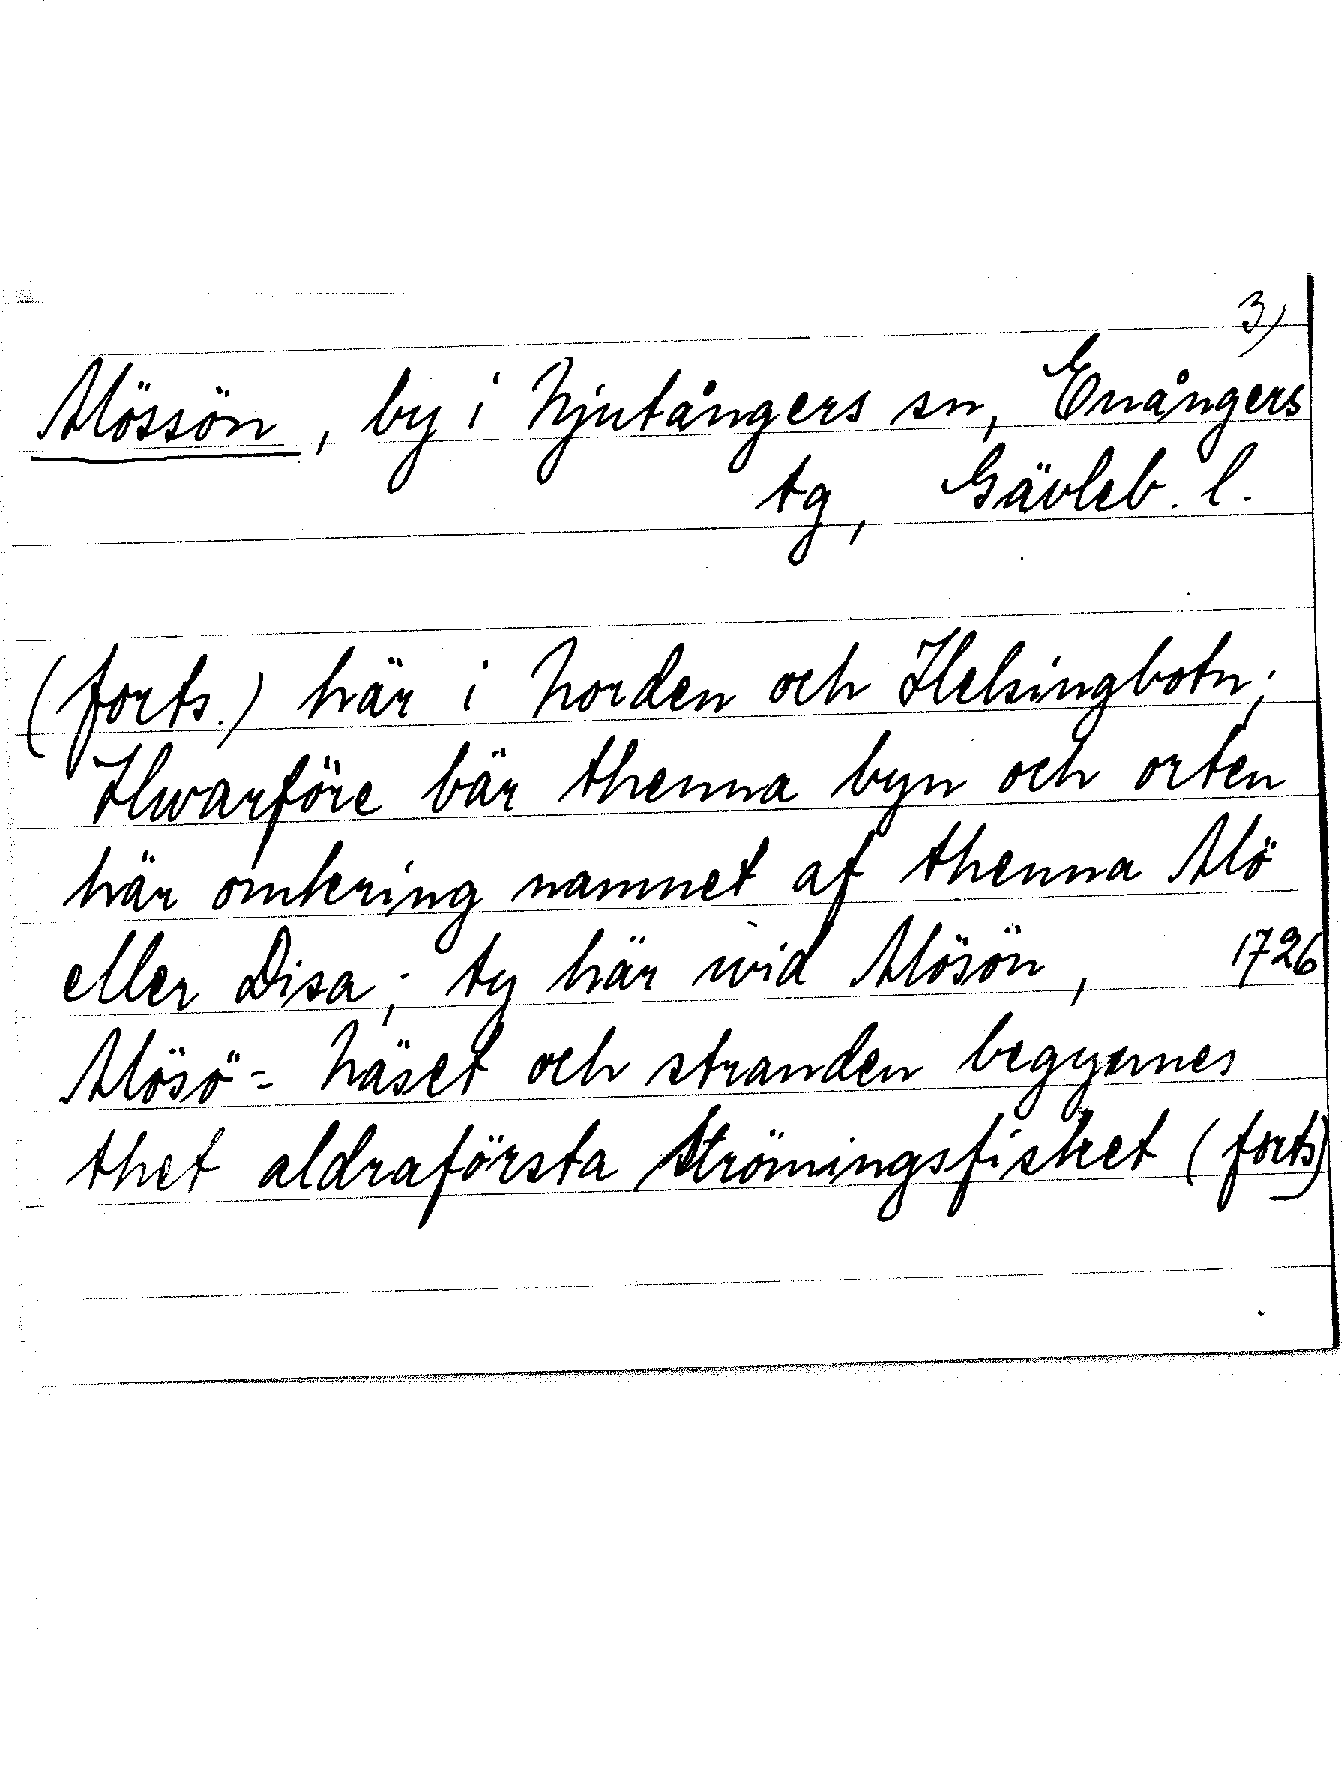 3)
Mössön, by i Njutångers sn, Enångers
tg, Gävleb. l.
(forts.) här i Norden och Helsingbotn;
Hwarföre bär thenna byn och orten
här omkring namnet af thenna Mö
eller Disa; ty här wid Mösön, 1726
Mösö-Näset och stranden begynnes
thet aldraförsta Strömingsfisket (forts)